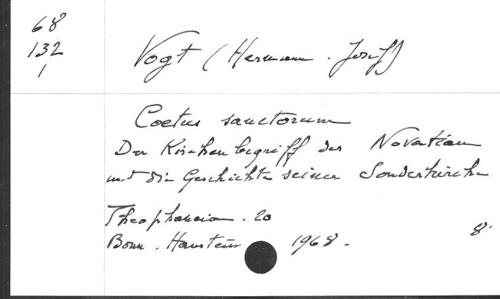 68
132
1
Vogt (Hermann . Josef)
Coetus sanctorum
Der Kirchenbegriff des Novatian
und die Geschichte seiner Sonderkirche
Theophaneia . 20
Bonn . Hanstein 1968 .
8°